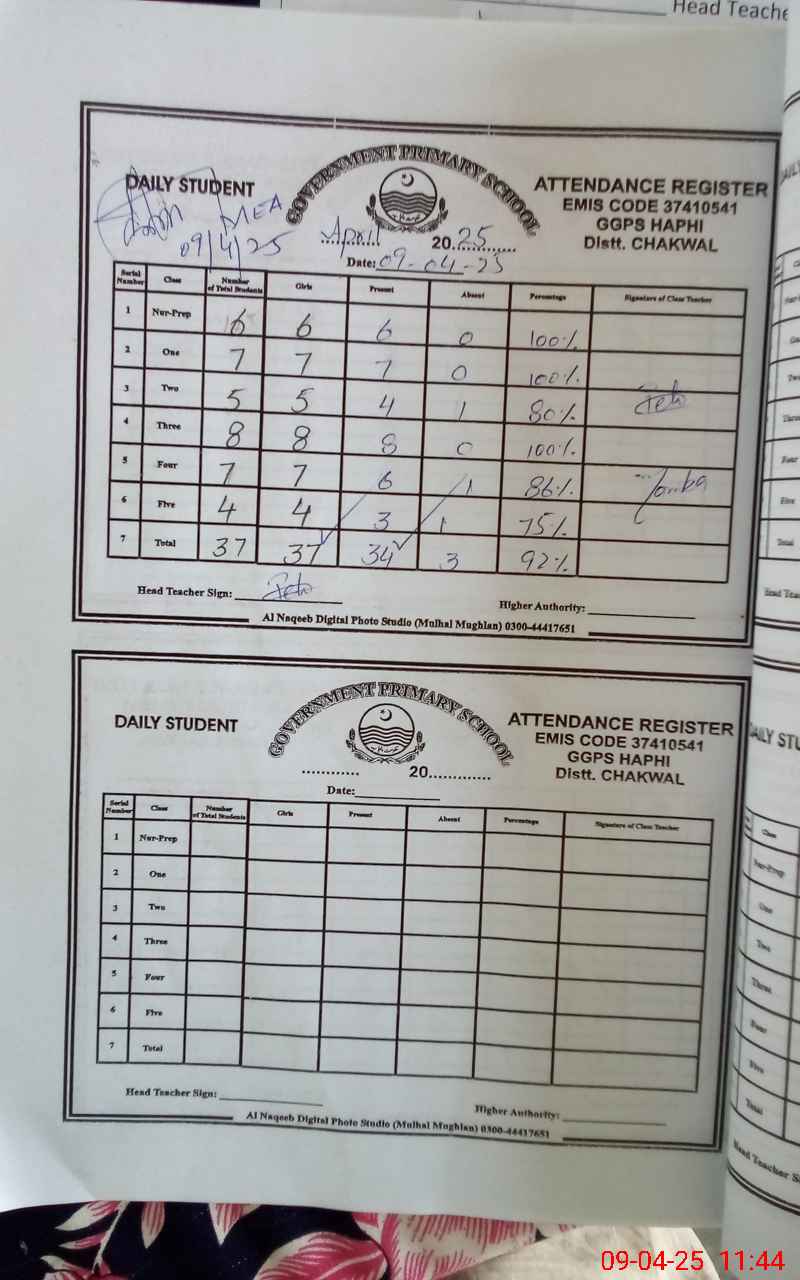 Head Teache
GOVERNMENT PRIMARY SCHOOL
DAILY STUDENT
ATTENDANCE REGISTER
EMIS CODE 37410541
GGPS HAPHI
Distt. CHAKWAL
MEA
09/4/25
April 2025
Date: 09-04-25
Serial Number Class Number of Total Students Girls Present Absent Percentage Signature of Class Teacher
1 Nur-Prep 6 6 6 0 100%
2 One 7 7 7 0 100%
3 Two 5 5 4 1 80%
4 Three 8 8 8 0 100%
5 Four 7 7 6 1 86%
6 Five 4 4 3 1 75%
7 Total 37 37 34 3 92%
Head Teacher Sign:
Higher Authority:
Al Naqeeb Digital Photo Studio (Mulhal Mughlan) 0300-44417651
GOVERNMENT PRIMARY SCHOOL
DAILY STUDENT
ATTENDANCE REGISTER
EMIS CODE 37410541
GGPS HAPHI
Distt. CHAKWAL
............ 20.............
Date:
Serial Number Class Number of Total Students Girls Present Absent Percentage Signature of Class Teacher
1 Nur-Prep
2 One
3 Two
4 Three
5 Four
6 Five
7 Total
Head Teacher Sign:
Higher Authority:
Al Naqeeb Digital Photo Studio (Mulhal Mughlan) 0300-44417651
DAILY STU
Class
Nur-Prep
One
Two
Three
Four
Five
Total
Head Teacher S
09-04-25 11:44